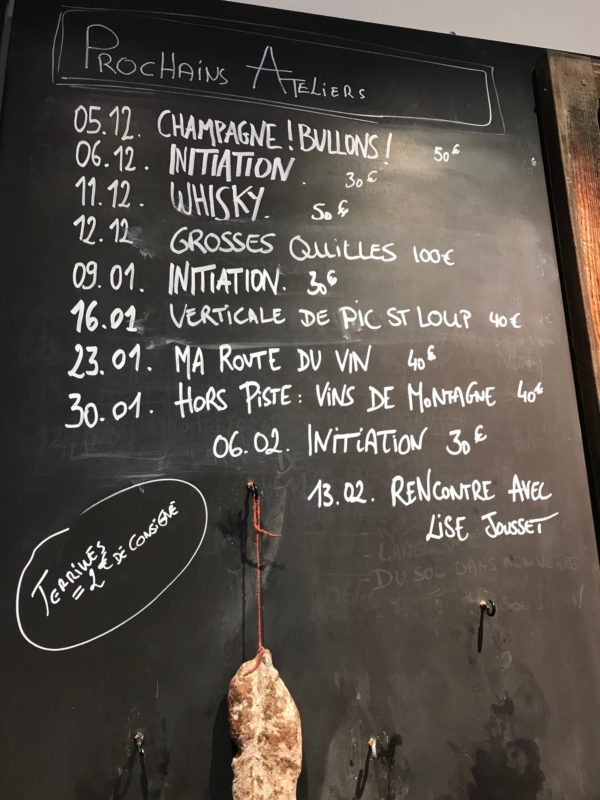 PROCHAINS ATELIERS
05.12. CHAMPAGNE ! BULLONS ! 50€
06.12. INITIATION. 30€
11.12. WHISKY. 50€
12.12 GROSSES QUILLES 100€
09.01. INITIATION. 30€
16.01 VERTICALE DE PIC ST LOUP 40€
23.01. MA ROUTE DU VIN 40€
30.01. HORS PISTE : VINS DE MONTAGNE 40€
06.02. INITIATION 30€
13.02. RENCONTRE AVEC
LISE JOUSSET
DU SOL DANS MON VERRE
TERRINES
= 2€ DE CONSIGNE